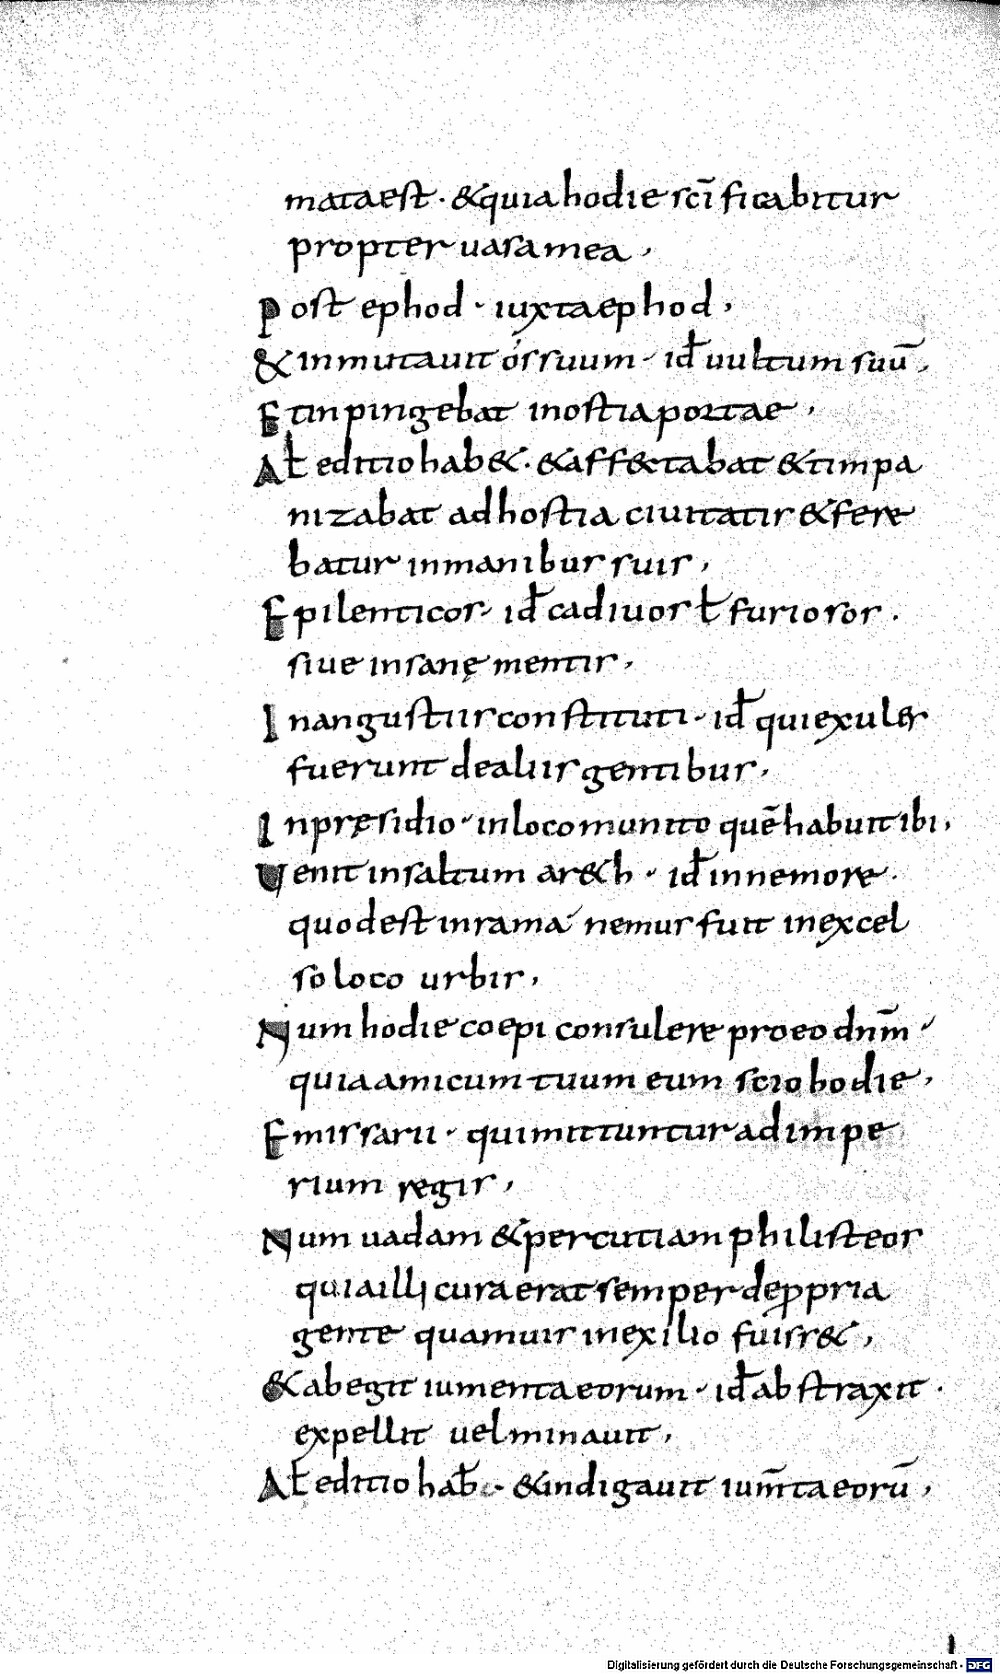 mata est · & quia hodie sc̄ificabitur
propter uasa mea ,
Post ephod · iuxta ephod ,
& inmutauit os suum · id̄ uultum suū ,
Et inpingebat in ostia portae ,
Al̄ editio hab& · & aff&tabat & timpa
nizabat ad hostia ciuitatis & fere
batur in manibus suis ,
Epilenticos · id̄ cadiuos ł furiosos .
siue insanę mentis ,
In angustiis constituti · id̄ qui exules
fuerunt de aliis gentibus ,
In pręsidio · in loco munito quē habuit ibi ,
Venit in saltum ar&h · id̄ in nemore .
quod est in rama nemus fuit in excel
so loco urbis ,
Num hodie coepi consulere pro eo dnm̄
quia amicum tuum eum scio hodie ,
Emissarii · qui mittuntur ad impe
rium regis ,
Num uadam & percutiam philisteos
quia illi cura erat semper de ꝓpria
gente quamuis in exilio fuiss& ,
& abegit iumenta eorum · id̄ abstraxit .
expellit uel minauit ,
Al̄ editio hab̄ · & indigauit ium̄ta eorū ,
Digitalisierung gefördert durch die Deutsche Forschungsgemeinschaft - DFG